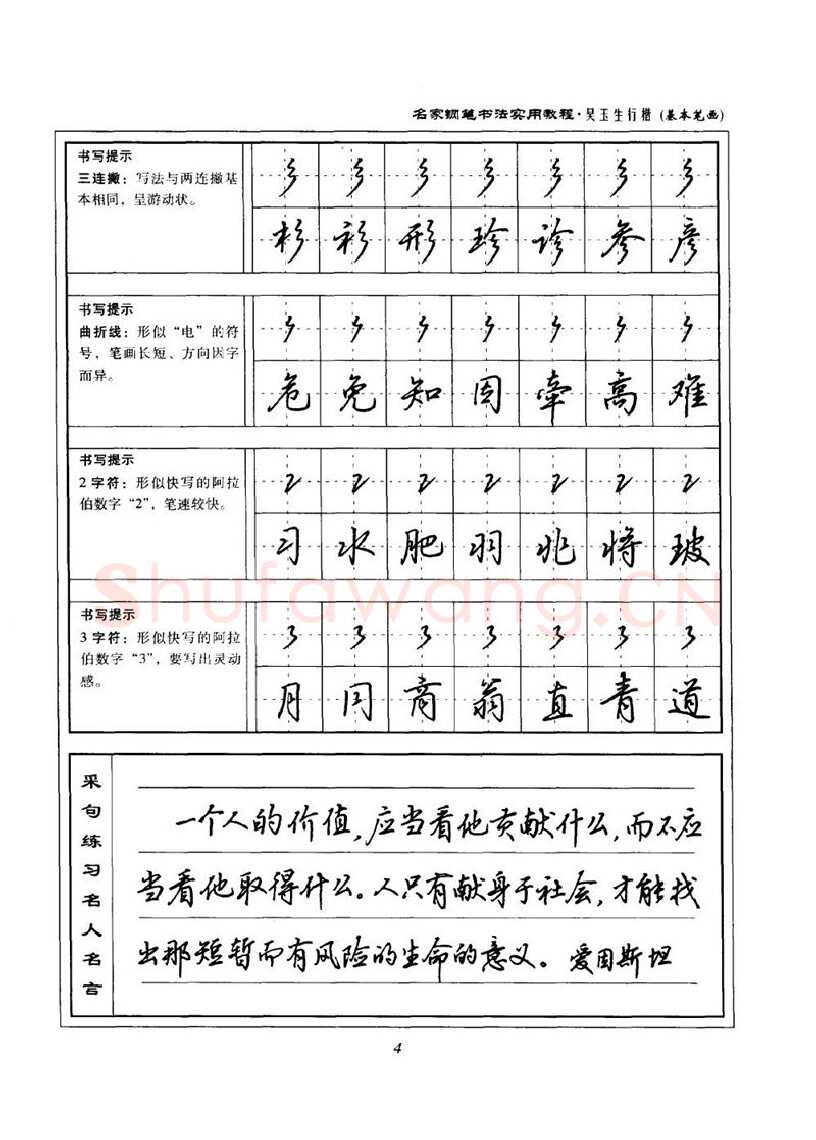 名家钢笔书法实用教程·吴玉生行楷(基本笔画)
书写提示
三连撇：写法与两连撇基
本相同，呈游动状。
彡 彡 彡 彡 彡 彡 彡
杉 衫 形 珍 诊 参 彦
书写提示
曲折线：形似“电”的符
号，笔画长短、方向因字
而异。
危 免 知 因 牵 高 难
书写提示
2字符：形似快写的阿拉
伯数字“2”，笔速较快。
2 2 2 2 2 2 2
习 水 肥 羽 兆 将 玻
书写提示
3字符：形似快写的阿拉
伯数字“3”，要写出灵动
感。
3 3 3 3 3 3 3
月 同 商 翁 直 青 道
采句练习名人名言
一个人的价值，应当看他贡献什么，而不应
当看他取得什么。人只有献身于社会，才能找
出那短暂而有风险的生命的意义。 爱因斯坦
Shufawang.CN
4